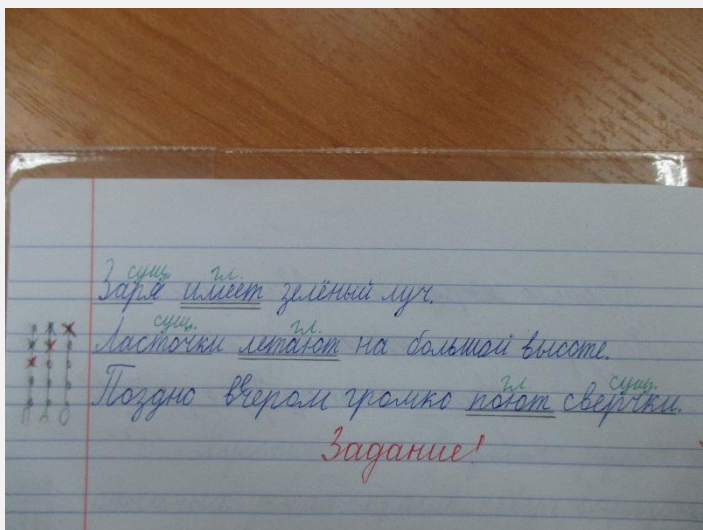 сущ. гл.
Заря имеет зелёный луч.
сущ. гл.
Ласточки летают на большой высоте.
гл. сущ.
Поздно вчером громко поют сверчки.
П А О
Задание!